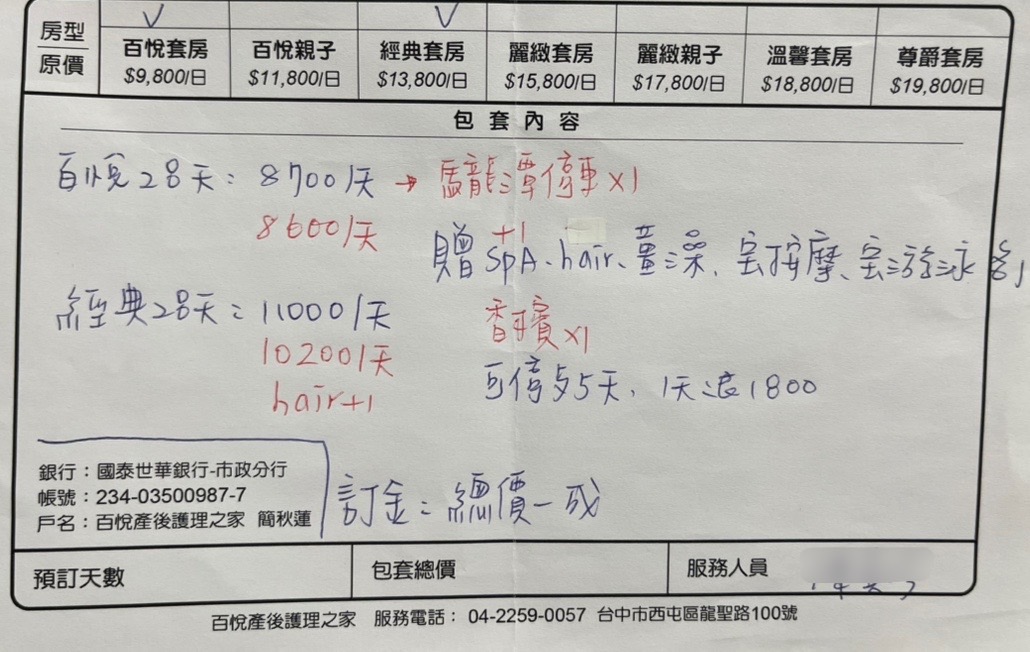 房型 百悅套房 百悅親子 經典套房 麗緻套房 麗緻親子 溫馨套房 尊爵套房
原價 $9,800/日 $11,800/日 $13,800/日 $15,800/日 $17,800/日 $18,800/日 $19,800/日
包套內容
百悅28天：8700/天 → 龍潭停車x1
8600/天
+1
贈 SPA、hair、薑澡、宝按摩、宝游泳各1
經典28天：11000/天
香檳x1
10200/天
hair+1
天，1天退1800
銀行：國泰世華銀行-市政分行
帳號：234-03500987-7
戶名：百悅產後護理之家 簡秋蓮
訂金：總價一成
預訂天數 包套總價 服務人員
百悅產後護理之家 服務電話： 04-2259-0057 台中市西屯區龍聖路100號